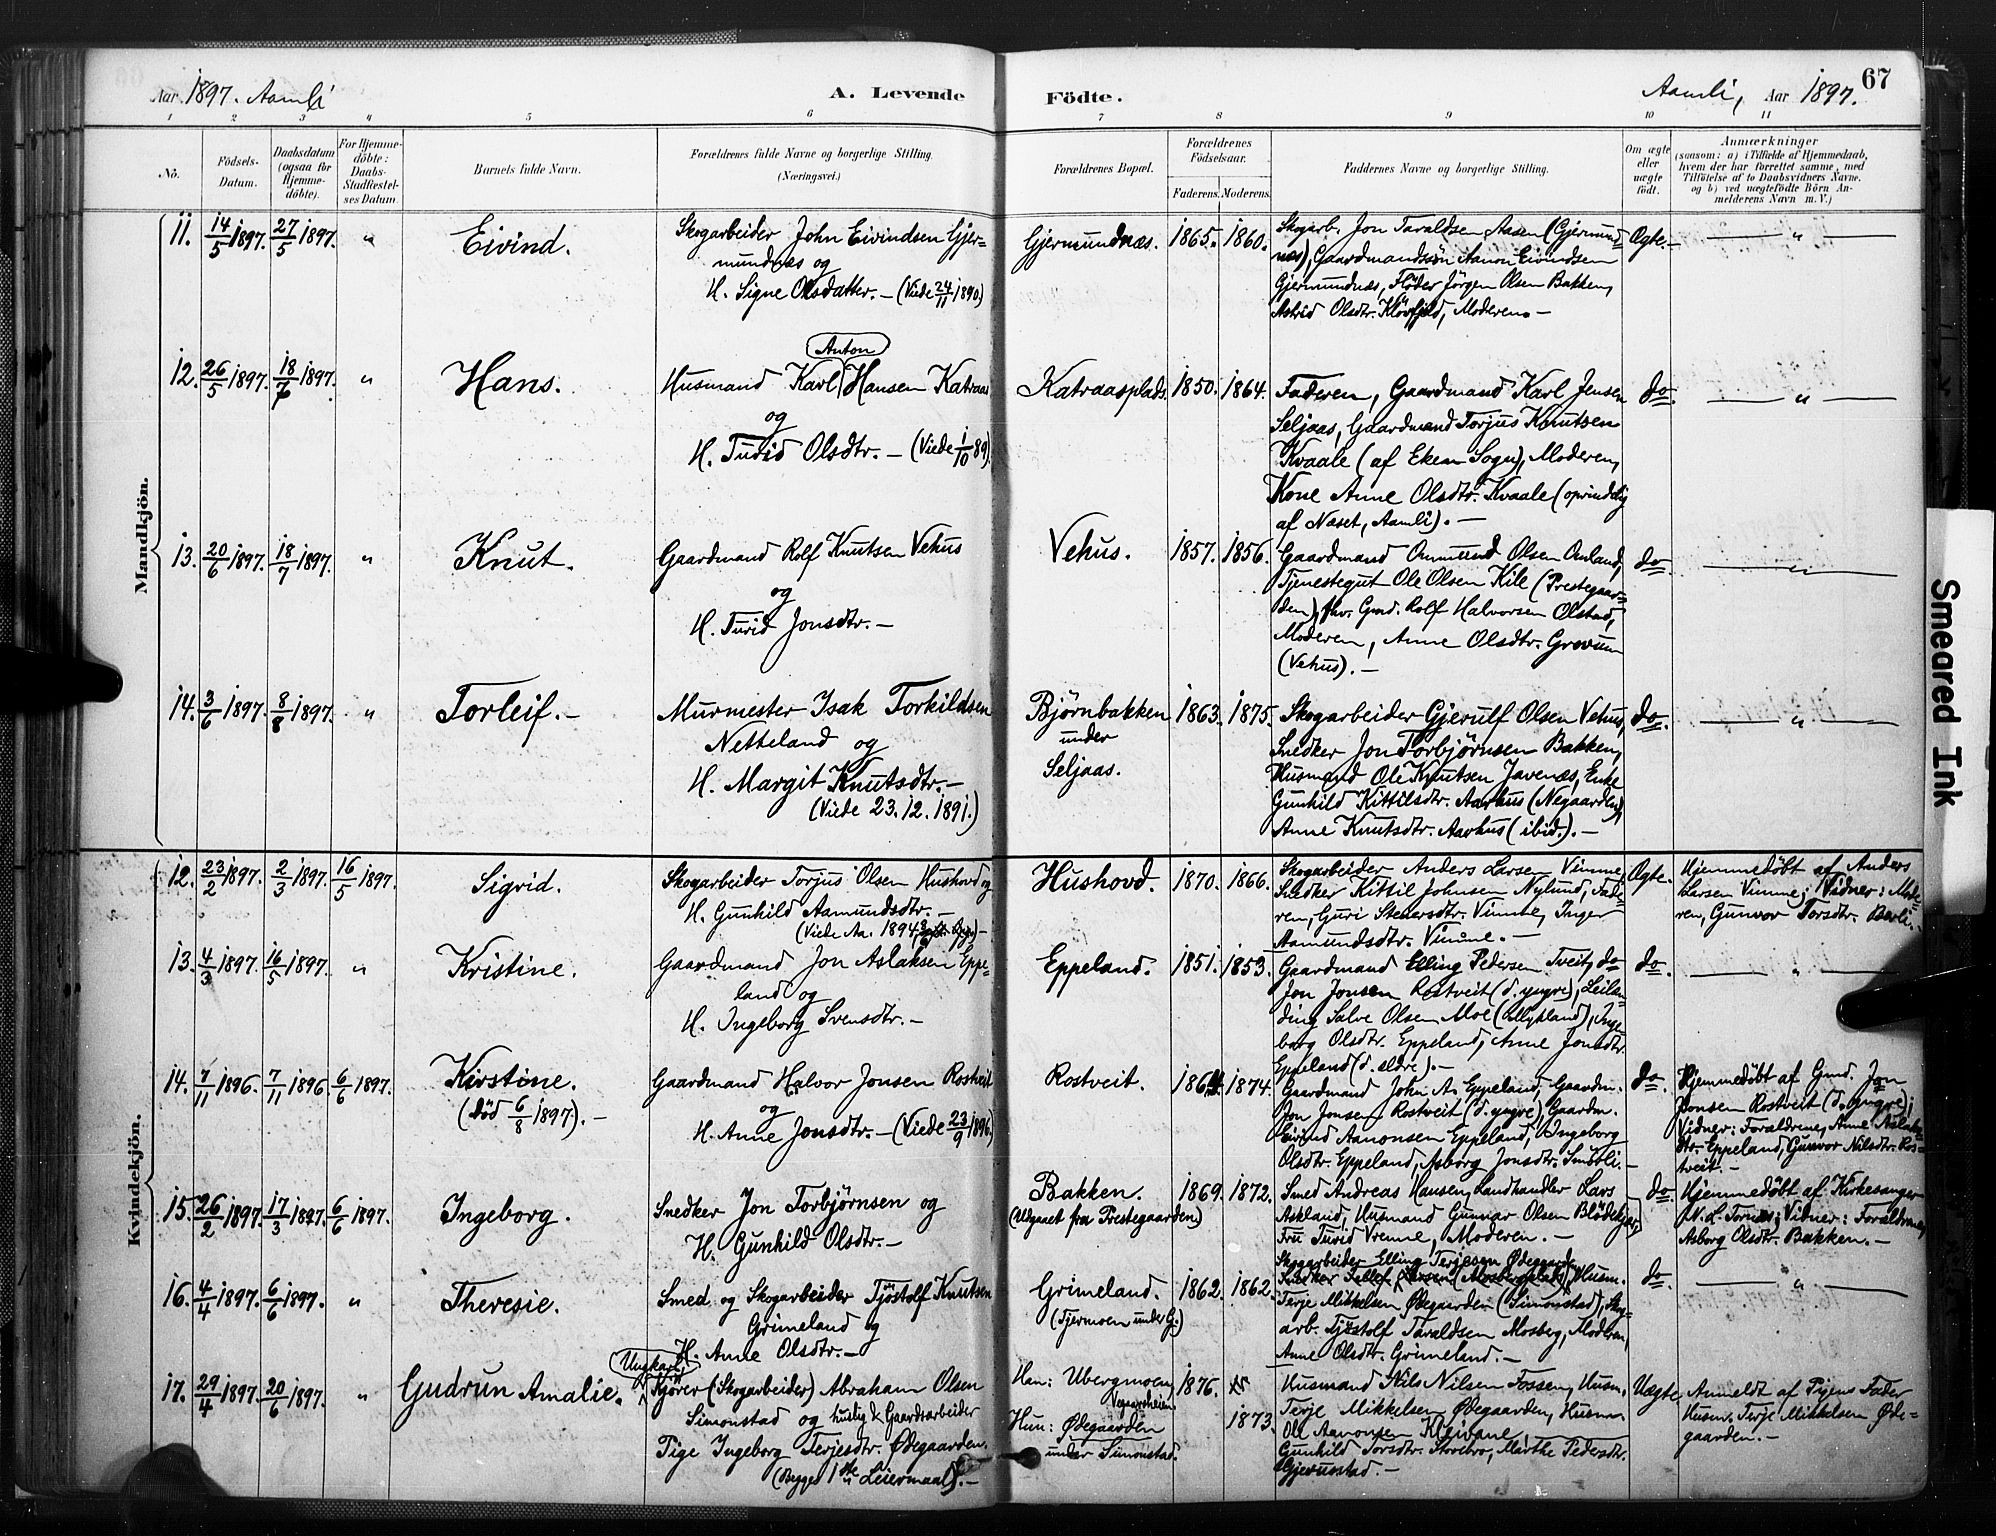 Aar 1897. Aamli
A. Levende
Födte.
Aamli, Aar 1897.
67
1 2 3 4 5 6 7 8 9 10 11
No.
Födsels-
Datum.
Daabsdatum
(ogsaa for
Hjemme-
döbte).
For Hjemme-
döbte:
Daabs-
Stadfæstel-
ses Datum.
Barnets fulde Navn.
Forældrenes fulde Navne og borgerlige Stilling.
(Næringsvei.)
Forældrenes Bopæl.
Forældrenes
Födselsaar.
Faderens. Moderens.
Faddernes Navne og borgerlige Stilling.
Om ægte
eller
uægte
födt.
Anmærkninger
(saasom: a) i Tilfælde af Hjemmedaab,
hvem der har forrettet samme, med
Tilföielse af to Daabsvidners Navne.
og b) ved uægtefödte Börn An-
melderens Navn m. V.)
Mandkjön.
11. 14/5 1897. 27/5 1897. "
Eivind.
Skogarbeider John Eivindsen Gjer=
mundnæs og
H. Signe Olsdatter. – (Viede 24/11 1890)
Gjermundnæs. 1865. 1860.
Skogarb. Jon Taraldsen Aasen (Gjermund=
næs), Gaardmandssön Aanon Eivindsen
Gjermundnæs, Flöder Jörgen Olsen Bakken,
Astrid Olsdtr. Klövfjeld, Moderen. –
Ægte. – " –
12. 26/5 1897. 18/7 1897. "
Hans.
Anton
Husmand Karl Hansen Katraas
og
H. Turid Olsdtr. – (Viede 1/10 89)
Katraasplads. 1850. 1864.
Faderen, Gaardmand Karl Jensen
Seljaas, Gaardmand Torjus Knutsen
Kvaale (af Eken Sogn), Moderen,
Kone Anne Olsdtr. Kvaale (oprindelig
af Næset, Aamli). –
do. – " –
13. 20/6 1897. 18/7 1897. "
Knut.
Gaardmand Rolf Knutsen Vehus
og
H. Turid Jonsdtr. –
Vehus. 1857. 1856.
Gaardmand Ommund Olsen Omland,
Tjenestegut Ole Olsen Kile (Prestegaar=
den), fhv. Gmd. Rolf Halvorsen Olstad,
Moderen, Anne Olsdtr. Grovum
(Vehus). –
do. – " –
14. 3/6 1897. 8/8 1897. "
Torleif. –
Murmester Isak Torkildsen
Netteland og
H. Margit Knutsdtr. –
(Viede 23.12.1891.)
Bjørnbakken
under
Seljaas.
1863. 1875.
Skogarbeider Gjerulf Olsen Vehus,
Snedker Jon Torbjørnsen Bakken,
Husmand Ole Knutsen Javenæs, Enke
Gunhild Kittilsdtr. Aarhus (Negaarden),
Anne Knutsdtr. Aarhus (ibid.). –
do. – " –
Kvindekjön.
12. 23/2 1897. 2/3 1897. 16/5 1897.
Sigrid.
Skogarbeider Torjus Olsen Hushovd og
H. Gunhild Aamundsdtr. –
(Viede Aa. 1894
Hushovd. 1870. 1866.
Skogarbeider Anders Larsen Vimme,
Snedker Kittil Johnsen Nylund, Fade=
ren, Guri Stenersdtr. Vimme, Inger
Aamundsdtr. Vimme. –
Ægte.
Hjemmedøbt af Anders
Larsen Vimme; Vidner: Mode=
ren, Gunvor Torsdtr. Berli. –
13. 4/3 1897. 16/5 1897. "
Kristine.
Gaardmand Jon Aslaksen Eppe=
land og
H. Ingeborg Svensdtr. –
Eppeland. 1851. 1853.
Gaardmand Elling Pedersen Tveit, do
Jon Jonsen Rostveit (d. yngre), Leilæn=
ding Salve Olsen Moe, Inge=
borg Olsdtr. Eppeland, Anne Jonsdtr.
Eppeland (d. eldre). –
do. – " –
14. 7/11 1896. 7/11 1896 6/6 1897.
Kirstine.
(död 6/8 1897). –
Gaardmand Halvor Jonsen Rostveit
og
H. Anne Jonsdtr. – (Viede 23/9 1896.)
Rostveit. 1864. 1874.
Gaardmand John A. Eppeland, Gaardm.
Jon Jonsen Rostveit (d. yngre), Gaardm.
Eivind Aanonsen Eppeland, Ingeborg
Olsdtr. Eppeland, Asborg Jonsdtr. Smböli. –
do.
Hjemmedøbt af Gmd. Jon
Jonsen Rostveit (d. yngre);
Vidner: Forældrene, Anne Aslaks=
dtr. Eppeland, Gunvor Nilsdtr. Ros=
tveit. –
15. 26/2 1897. 17/3 1897. 6/6 1897.
Ingeborg.
Snedker Jon Torbjørnsen og
H. Gunhild Olsdtr. –
Bakken.
(Udgaaet fra Prestegaarden)
1869. 1872.
Smed Andreas Hansen, Landhandler Lars
Askland, Husmand Gunnar Olsen
Fru Turid Vrenne, Moderen. –
do.
Hjemmedøbt af Kirkesanger
N. L. Tornes; Vidner: Forældrene,
Asborg Olsdtr. Bakken. –
16. 4/4 1897. 6/6 1897. "
Theresie.
Smed og Skogarbeider Tjöstolf Knutsen
Grimeland og
H. Anne Olsdtr. –
Grimeland.
(Tjermoen under G.)
1862. 1862.
Skogarbeider Elling Terjesen Ødegaarden
Snedker Sellef Husm.
Terje Mikkelsen Ødegaarden (Simonstad), Skog=
arb. Tjöstolf Taraldsen Mosberg, Moderen,
Anne Olsdtr. Grimeland. –
do. – " –
17. 29/4 1897. 20/6 1897. "
Gudrun Amalie.
Ungkarl
Kjörer (Skogarbeider) Abraham Olsen
Simonstad og huslig & Gaardsarbeider
Pige Ingeborg Terjesdtr. Ødegaarden.
(Begges 1ste Leiermaal). –
Han: Ubergmoen,
Vegaarsheien
Hun: Ødegaarden
under Simonstad.
1876.
1873.
Husmand Nils Nilsen Fossen, Husm.
Terje Mikkelsen Ødegaarden, Husm.
Ole Aanonsen Kleivane,
Gunhild Torsdtr. Storebro, Marthe Pedersdtr.
Gjerustad. –
Uægte
Anmeldt af Pigens Fader
Husm. Terje Mikkelsen Øde=
gaarden. –
Smeared Ink